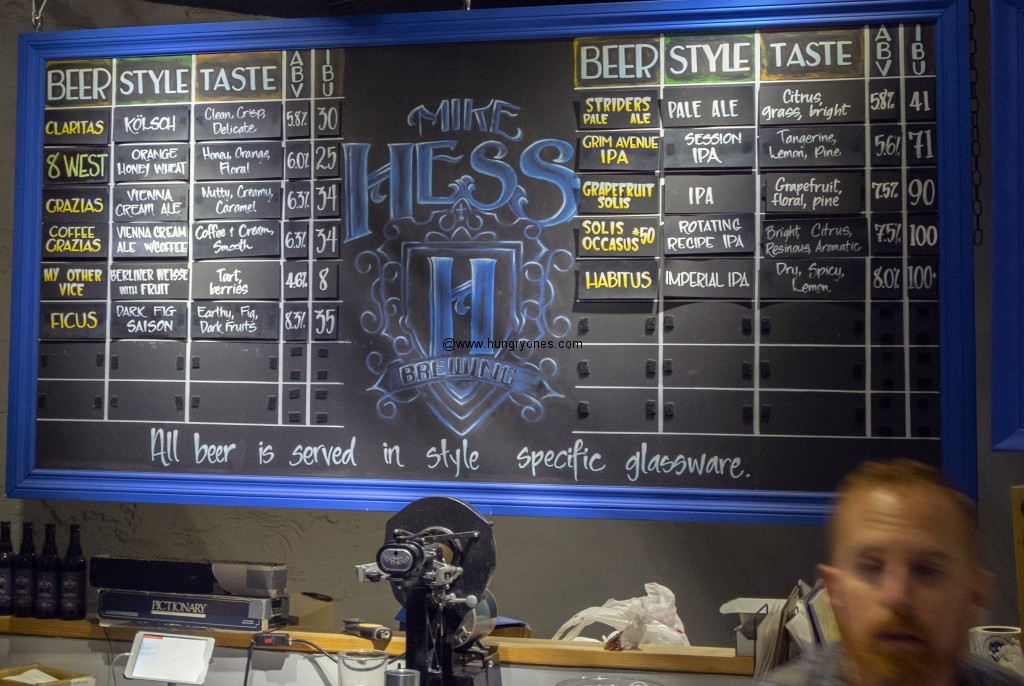 BEER STYLE TASTE ABV IBU
CLARITAS KÖLSCH Clean, Crisp, Delicate 5.8% 30
8 WEST ORANGE HONEY WHEAT Honey, Orange, Floral 6.0% 25
GRAZIAS VIENNA CREAM ALE Nutty, Creamy, Caramel 6.3% 34
COFFEE GRAZIAS VIENNA CREAM ALE W/COFFEE Coffee & Cream, Smooth 6.3% 34
MY OTHER VICE BERLINER WEISSE WITH FRUIT Tart, berries 4.6% 8
FICUS DARK FIG SAISON Earthy, Fig, Dark Fruits 8.3% 35
MIKE
HESS
H
BREWING
BEER STYLE TASTE ABV IBU
STRIDERS PALE ALE PALE ALE Citrus, grass, bright 5.8% 41
GRIM AVENUE IPA SESSION IPA Tangerine, Lemon, Pine 5.6% 71
GRAPEFRUIT SOLIS IPA Grapefruit, floral, pine 7.5% 90
SOLIS OCCASUS #50 ROTATING RECIPE IPA Bright Citrus, Resinous Aromatic 7.5% 100
HABITUS IMPERIAL IPA Dry, Spicy, Lemon 8.0% 100+
@www.hungryones.com
All beer is served in style specific glassware.
PICTIONARY